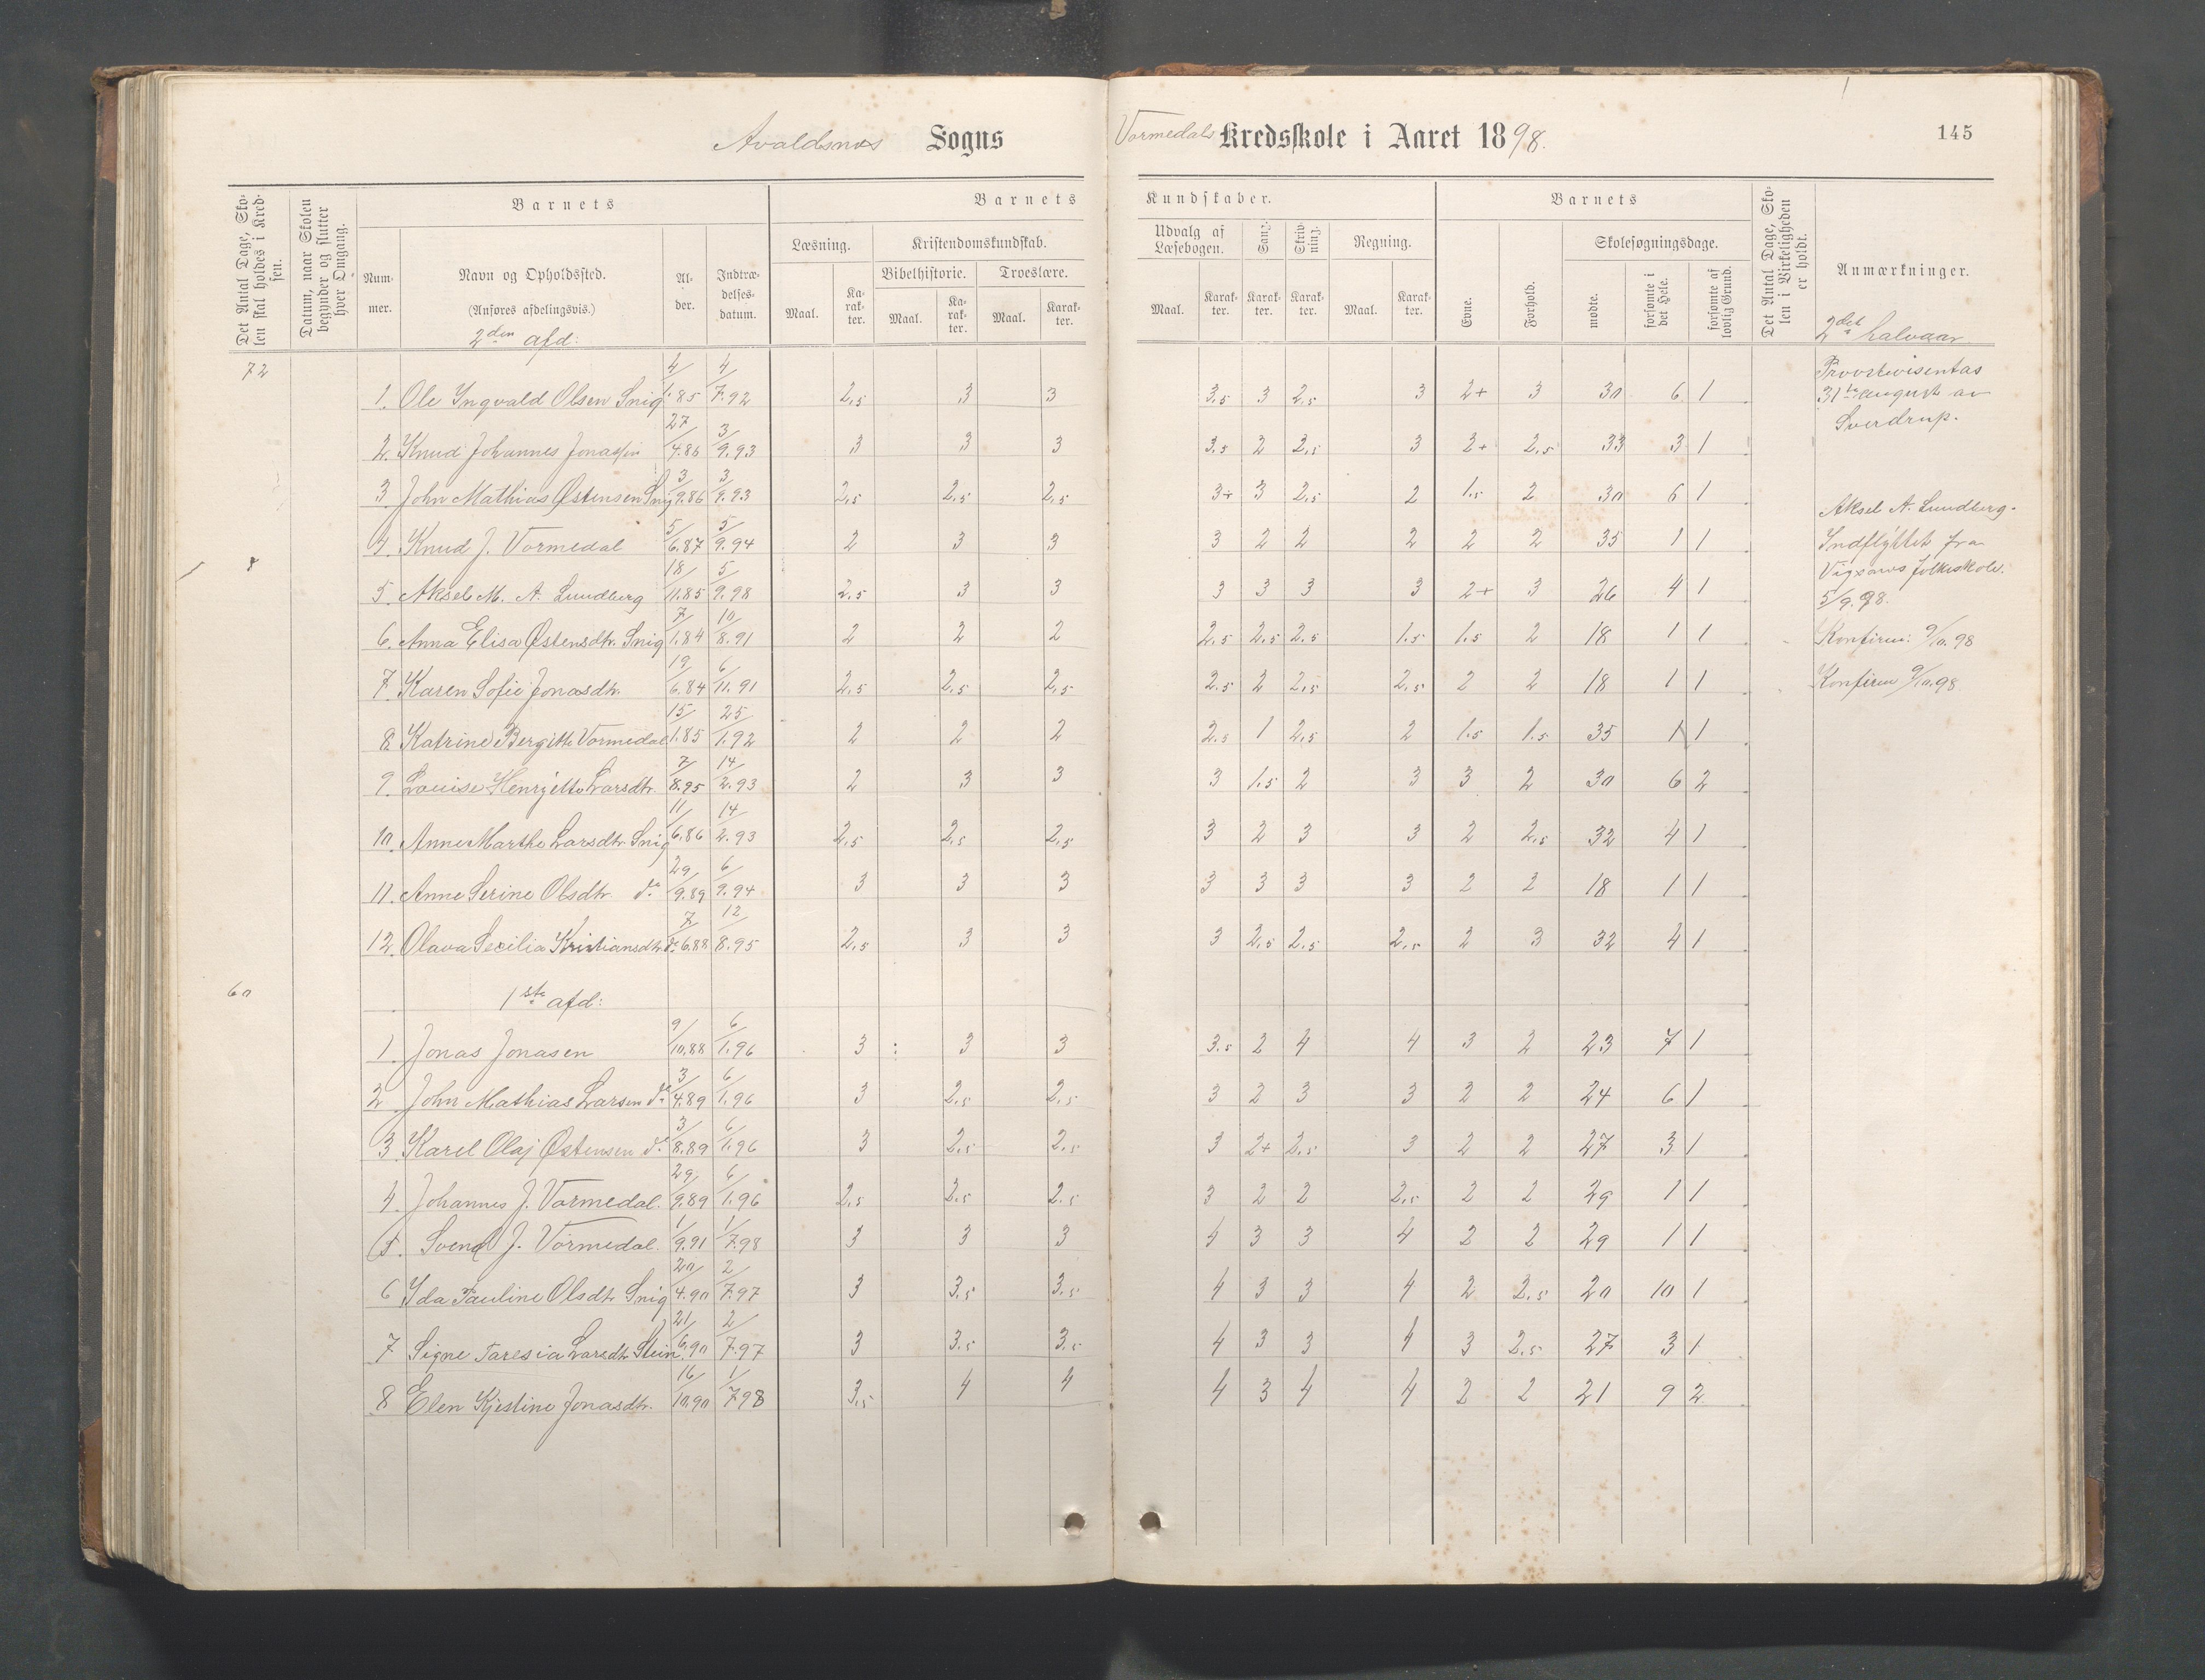 Avaldsnes Sogns Vormedals Kredsskole i Aaret 1898. 145
Det Antal Dage, Skolen skal holdes i Kredsen.
Datum, naar Skolen begynder og slutter hver Omgang.
Barnets
Nummer.
Navn og Opholdssted.
(Anføres afdelingsvis.)
2den afd:
Alder.
Indtrædelsesdatum.
Barnets Kundskaber.
Læsning. Kristendomskundskab. Udvalg af Læsebogen. Sang. Skrivning. Regning.
Bibelhistorie. Troeslære.
Maal. Karakter. Maal. Karakter. Maal. Karakter. Maal. Karakter. Karakter. Karakter. Maal. Karakter.
Barnets
Evne. Forhold. Skolesøgningsdage.
mødte. forsømte i det Hele. forsømte af lovlig Grund.
Det Antal Dage, Skolen i Virkeligheden er holdt.
Anmærkninger.
2det halvaar
72
1. Ole Yngvald Olsen Snig 4/1.85 4/7.92 2,5 3 3 3.5 3 2,5 3 2+ 3 30 6 1
Provstevisentas
31te august av
Sverdrup.
2. Knud Johannes Jonassen 27/4.86 3/9.93 3 3 3 3.5 2 2,5 3 2+ 2.5 33 3 1
3 John Mathias Østensen Snig 3/9.86 3/9.93 2,5 2,5 2,5 3+ 3 2,5 2 1.5 2 30 6 1
4. Knud J. Vormedal 5/6.87 5/9.94 2 3 3 3 2 2 2 2 2 35 1 1
8
5. Aksel M. A. Lundberg 18/11.85 5/9.98 2,5 3 3 3 3 3 3 2+ 3 26 4 1
Aksel A. Lundberg.
Indflyttet fra
Folkeskole.
5/9.98.
6. Anna Elisa Østensdtr. Snig 7/1.84 10/8.91 2 2 2 2.5 2,5 2,5 1.5 1.5 2 18 1 1 Konfirm: 9/10.98
7. Karen Sofie Jonasdtr. 19/6.84 6/11.91 2,5 2,5 2,5 2.5 2 2,5 2,5 2 2 18 1 1 Konfirm 9/10.98
8 Katrine Bergitte Vormedal 15/1.85 25/1.92 2 2 2 2.5 1 2,5 2 1.5 1.5 35 1 1
9. Louise Henrjette Larsdtr. 7/8.95 14/2.93 2 3 3 3 1.5 2 3 3 2 30 6 2
10. Anne Marthe Larsdtr. Snig 11/6.86 14/2.93 2,5 2,5 2,5 3 2 3 3 2 2,5 32 4 1
11. Anne Serine Olsdtr. do 29/9.89 6/9.94 3 3 3 3 3 3 3 2 2 18 1 1
12. Olava Secilia Kristiansdtr. do 7/6.88 12/8.95 2,5 3 3 3 2,5 2,5 2,5 2 3 32 4 1
60
1ste afd:
1. Jonas Jonasen 9/10.88 6/1.96 3 3 3 3.5 2 4 4 3 2 23 7 1
2 John Mathias Larsen do 3/4.89 6/1.96 3 2,5 2,5 3 2 3 3 2 2 24 6 1
3 Karel Olaj Østensen do 3/8.89 6/1.96 3 2,5 2,5 3 2+ 2,5 3 2 2 27 3 1
4. Johannes J. Vormedal. 29/9.89 6/1.96 2,5 2,5 2,5 3 2 2 2,5 2 2 29 1 1
5. Svend J. Vormedal. 1/9.91 1/7.98 3 3 3 4 3 3 4 2 2 29 1 1
6 Yda Pauline Olsdtr Snig 20/4.90 2/7.97 3 3,5 3,5 4 3 3 4 2 2,5 20 10 1
7 Signe Taresia Larsdtr. Stein 21/6.90 2/7.97 3 3,5 3,5 4 3 3 4 3 2,5 27 3 1
8 Elen Kjestine Jonasdtr. 16/10.90 1/7.98 3,5 4 4 4 3 4 4 2 2 21 9 2